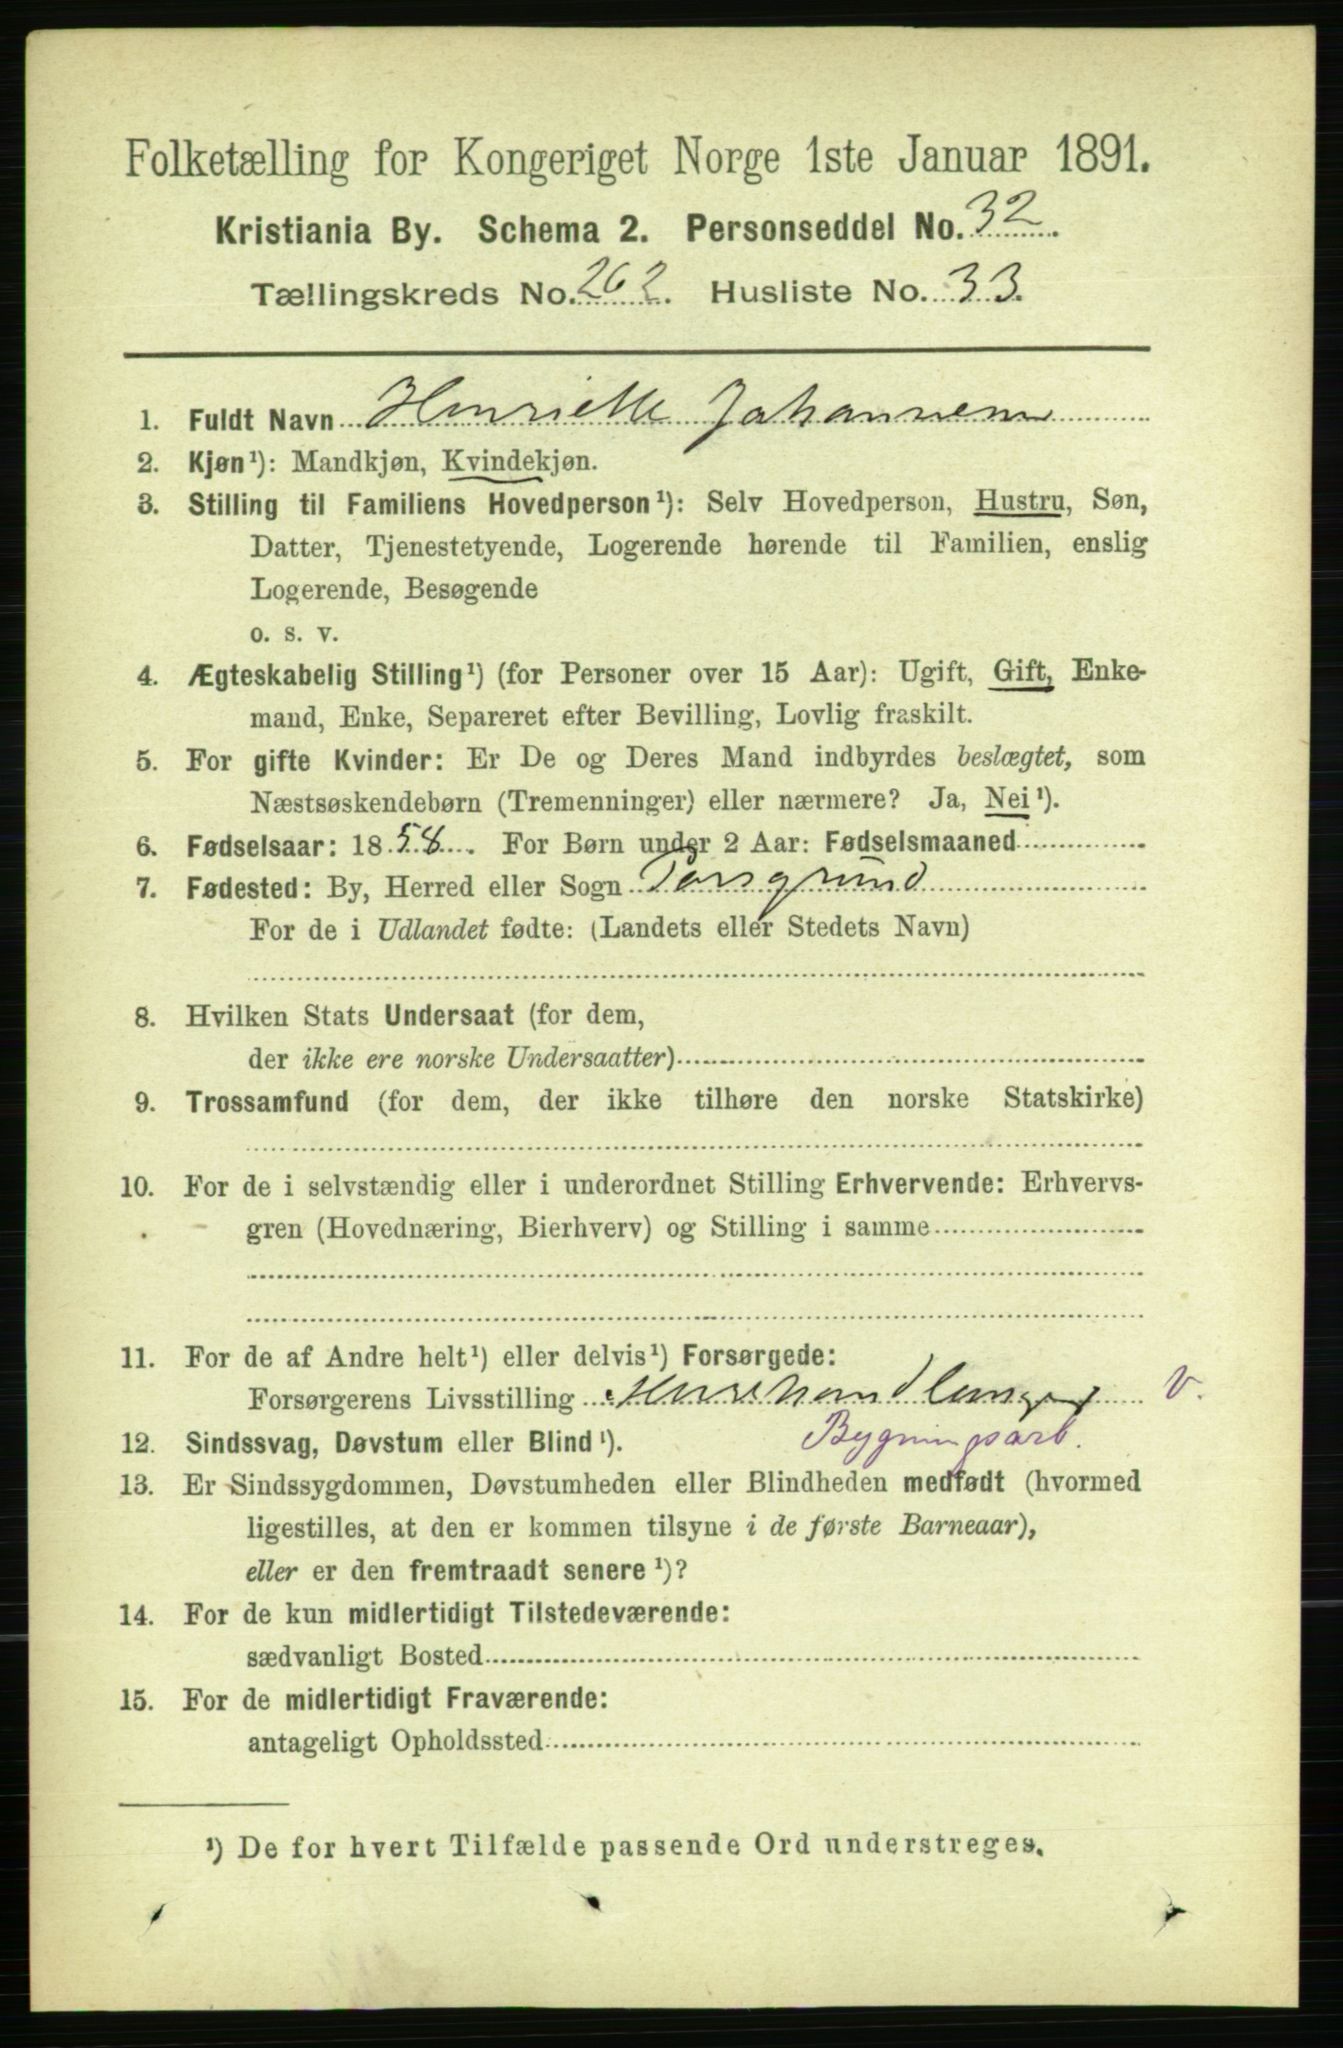 Folketælling for Kongeriget Norge 1ste Januar 1891.
Kristiania By. Schema 2. Personseddel No. 32.
Tællingskreds No. 262. Husliste No. 33.
1. Fuldt Navn Henriette Johannesen
2. Kjøn¹): Mandkjøn, Kvindekjøn.
3. Stilling til Familiens Hovedperson¹): Selv Hovedperson, Hustru, Søn,
Datter, Tjenestetyende, Logerende hørende til Familien, enslig
Logerende, Besøgende
o. s. v.
4. Ægteskabelig Stilling¹) (for Personer over 15 Aar): Ugift, Gift, Enke-
mand, Enke, Separeret efter Bevilling, Lovlig fraskilt.
5. For gifte Kvinder: Er De og Deres Mand indbyrdes beslægtet, som
Næstsøskendebørn (Tremenninger) eller nærmere? Ja, Nei¹).
6. Fødselsaar: 1858. For Børn under 2 Aar: Fødselsmaaned
7. Fødested: By, Herred eller Sogn Porsgrund
For de i Udlandet fødte: (Landets eller Stedets Navn)
8. Hvilken Stats Undersaat (for dem,
der ikke ere norske Undersaatter)
9. Trossamfund (for dem, der ikke tilhøre den norske Statskirke)
10. For de i selvstændig eller i underordnet Stilling Erhvervende: Erhvervs-
gren (Hovednæring, Bierhverv) og Stilling i samme
11. For de af Andre helt¹) eller delvis¹) Forsørgede:
Forsørgerens Livsstilling Murhandlanger v.
12. Sindssvag, Døvstum eller Blind¹). Bygningsarb.
13. Er Sindssygdommen, Døvstumheden eller Blindheden medfødt (hvormed
ligestilles, at den er kommen tilsyne i de første Barneaar),
eller er den fremtraadt senere¹)?
14. For de kun midlertidigt Tilstedeværende:
sædvanligt Bosted
15. For de midlertidigt Fraværende:
antageligt Opholdssted
¹) De for hvert Tilfælde passende Ord understreges.